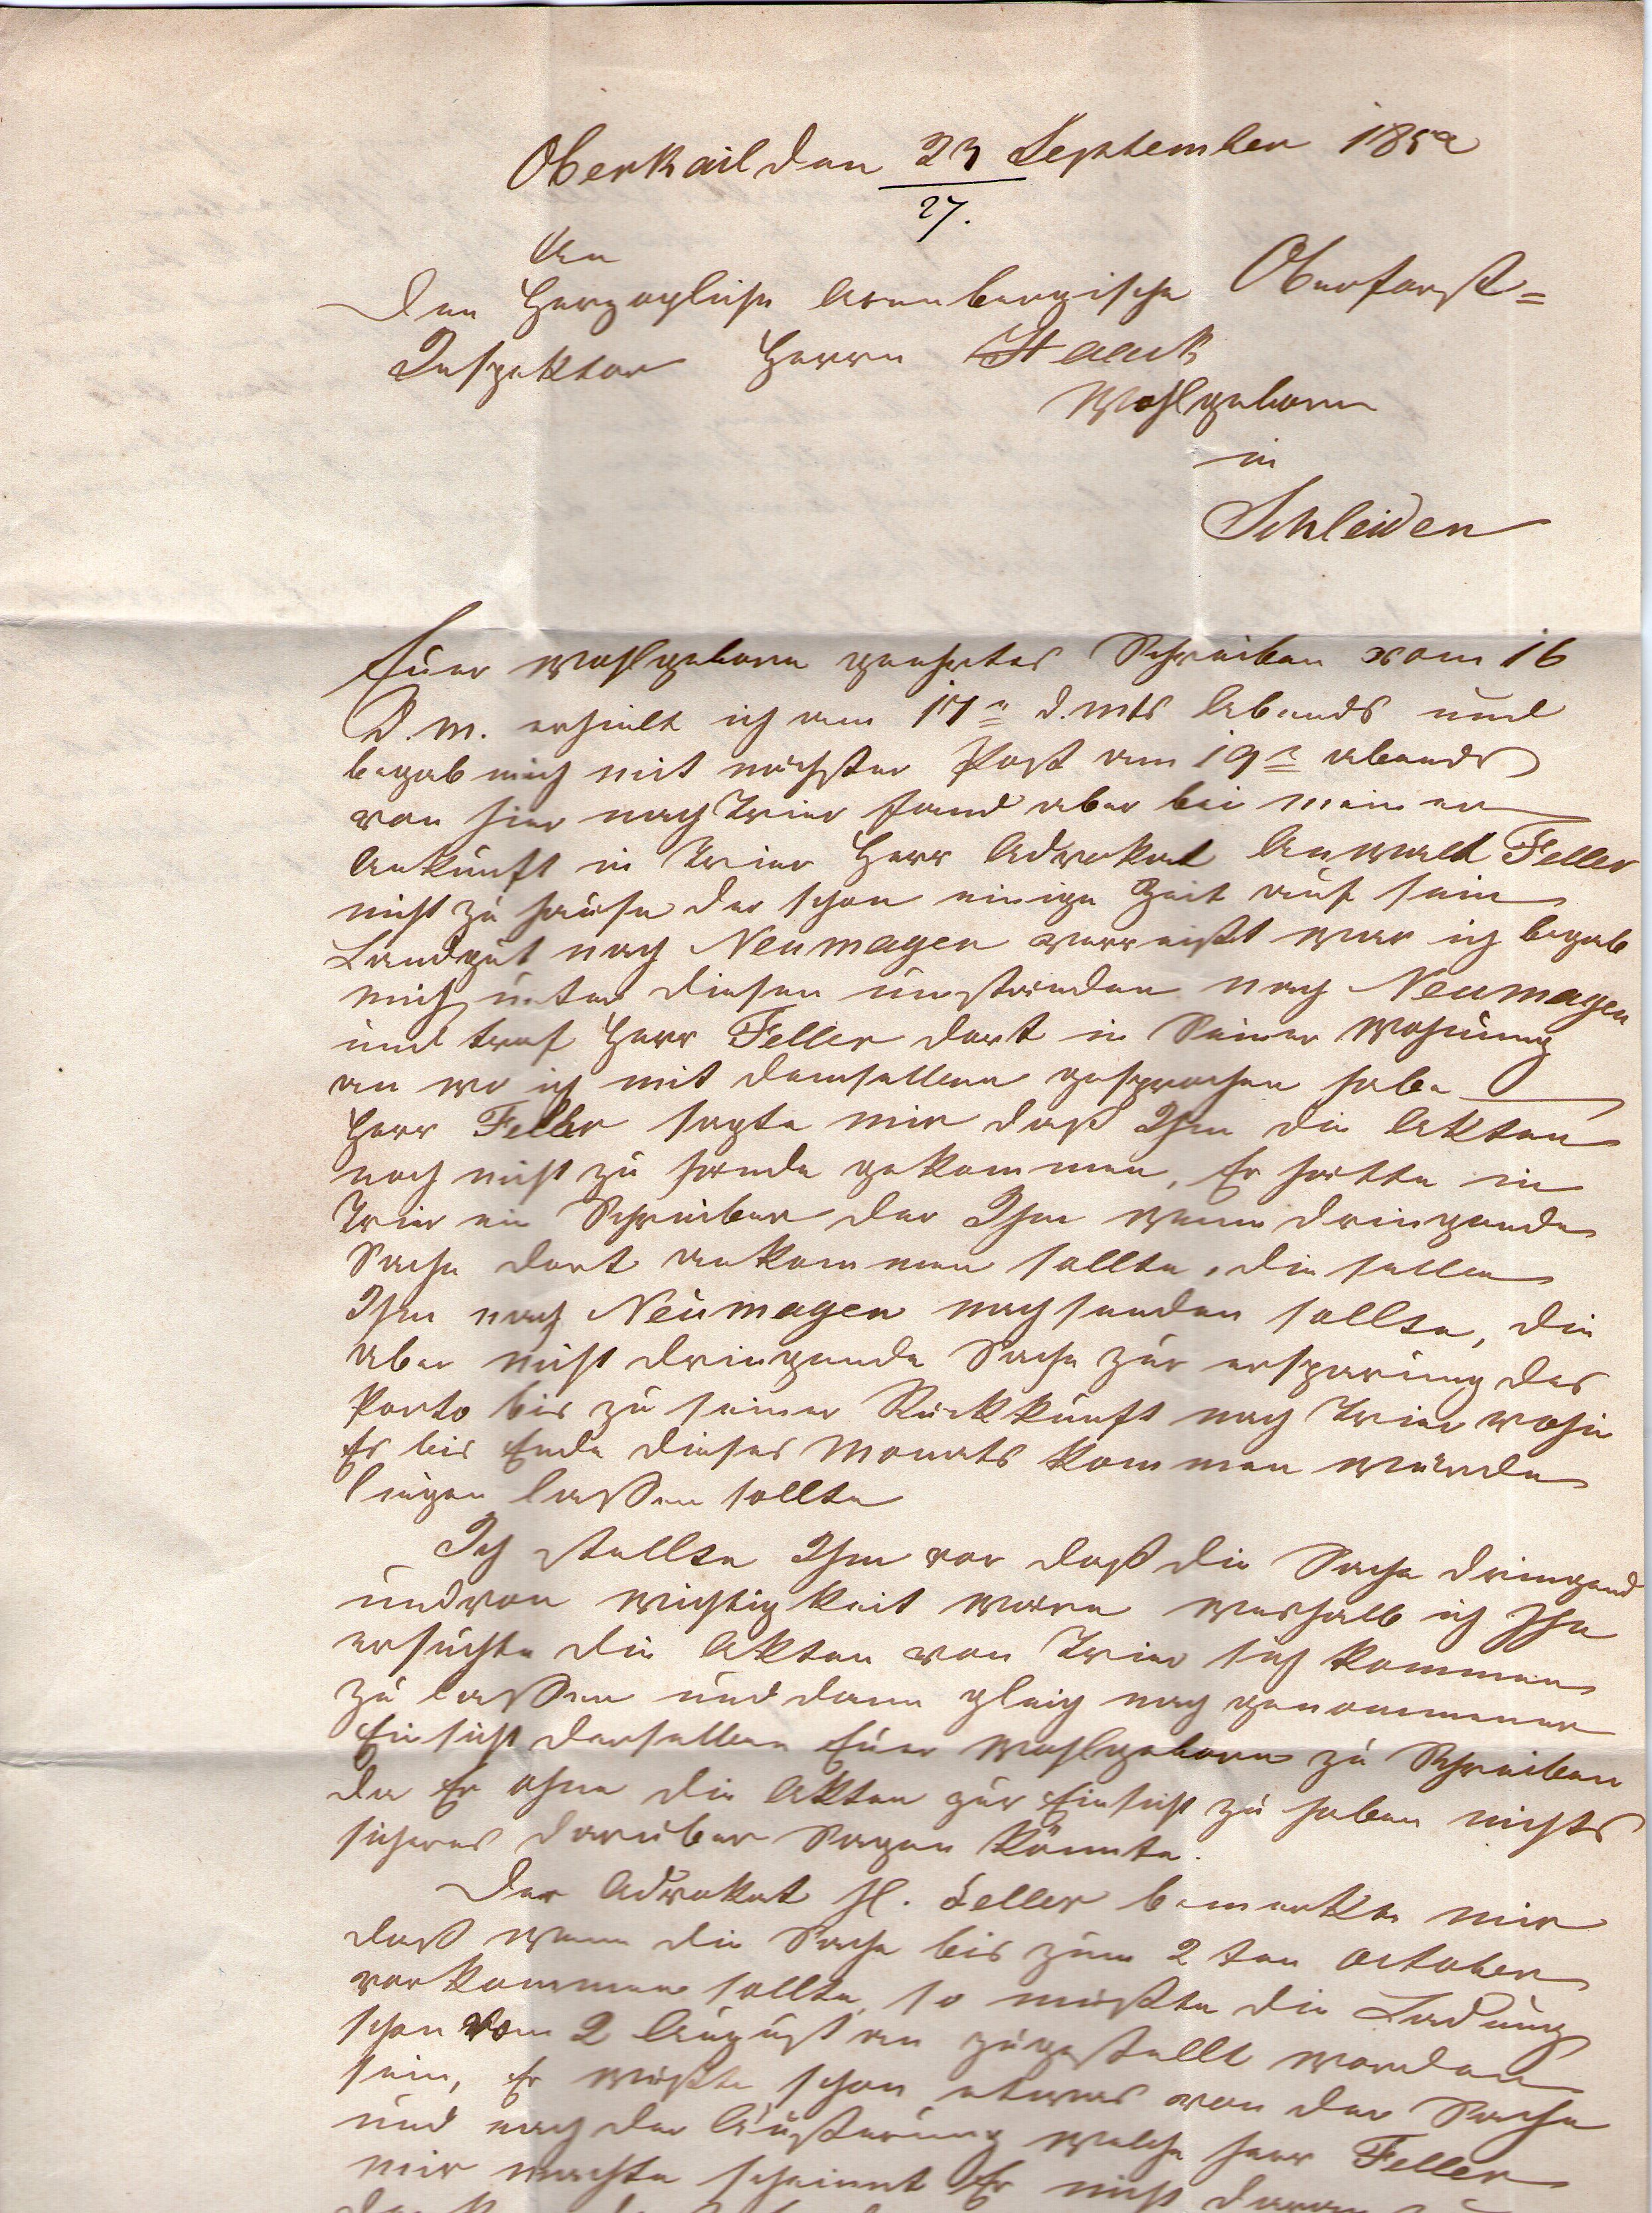 Oberkail den 23 September 185
27.
An
den Herzogliche Arenbergische Oberforst=
Inspektor Herrn
Wohlgeborn
in
Schleiden
Euer Wohlgeborn geehrtes Schreiben vom 16
d. m. erhielt ich am 17n d. mts Abends und
begab mich mit nächster Post am 19n abends
von hier nach Trier fand aber bei meiner
Ankunft in Trier Herr Advokat Anwald Feller
nicht zu hause der schon einige Zeit auf sein
Landgut nach Neumagen verreißt war ich begab
mich unter diesen umständen nach Neumagen
und traf Herr Feller dort in Seiner Wohnung
an wo ich mit demselben gesprochen habe
Herr Feller sagte mir daß Ihm die Akten
noch nicht zu hände gekommen, Er hätte in
Trier ein Schreiber der Ihm wenn dringende
Sache dort ankommen sollte, dieselben
Ihm nach Neumagen nachsenden sollte, die
aber nicht dringende Sache zur ersparung des
Porto bis zu seiner Rückkunft nach Trier wohin
Er bis Ende dieses Monats kommen würde
liegen laßen sollte
Ich stellte Ihm vor daß die Sache dringend
und von wichtigkeit wäre weshalb ich Ihn
ersuchte die Akten von Trier sich kommen
zu laßen und dann gleich nach genommener
Einsicht derselben Euer Wohlgeborn zu Schreiben
da Er ohne die Akten zur Einsicht zu haben nichts
sicheres darüber Sagen könnte.
Der Advokat H. Feller bemerkte mir
daß wenn die Sache bis zum 2ten October
vorkommen sollte, so müßte die Ladung
schon vom 2 August an zugestellt worden
sein, Er wüßte schon etwas von der Sache
und nach der Äußerung welche Herr Feller
mir machte scheinnt Er nicht